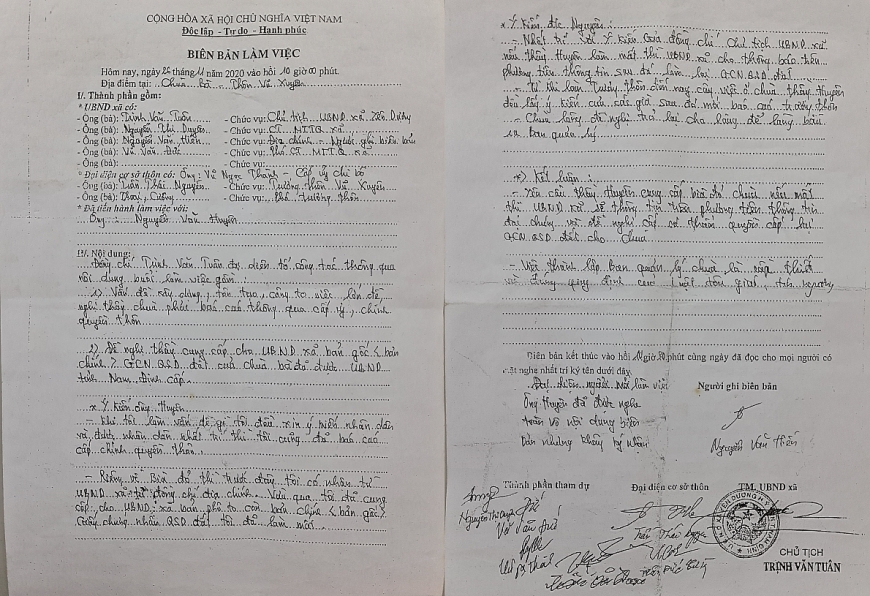 CỘNG HÒA XÃ HỘI CHỦ NGHĨA VIỆT NAM
Độc lập - Tự do - Hạnh phúc
BIÊN BẢN LÀM VIỆC
Hôm nay, ngày 26 tháng 11 năm 2020 vào hồi 10 giờ 00 phút.
Địa điểm tại: Chùa - Thôn Vũ Xuyên
I/. Thành phần gồm:
* UBND xã có:
- Ông (bà): Trịnh Văn Tuân - Chức vụ: Chủ tịch UBND xã Yên Dương
- Ông (bà): Nguyễn Thị Duyên - Chức vụ: CT MTTQ xã
- Ông (bà): Nguyễn Văn - Chức vụ: Địa chính - Người ghi biên bản
- Ông (bà): Vũ Văn Đức - Chức vụ: Phó CT MTTQ xã
- Ông (bà): - Chức vụ:
* Đại diện cơ sở thôn có: Ông: Vũ Ngọc Thanh - Cấp ủy chi bộ
- Ông (bà): Trần Thái Nguyên - Chức vụ: Trưởng thôn Vũ Xuyên
- Ông (bà): Cường - Chức vụ: Phó trưởng thôn
* Đã tiến hành làm việc với:
Ông: Nguyễn Văn Huyên
II/. Nội dung:
Đồng chí Trịnh Văn Tuân đại diện tổ công tác thông qua
nội dung buổi làm việc gồm:
1) Vấn đề xây dựng, tôn tạo, công to việc lớn đề
nghị thầy chùa phải báo cáo thông qua cấp ủy, chính
quyền thôn.
2) Đề nghị thầy cung cấp cho UBND xã bản gốc < bản
chính > GCN QSD đất của chùa đã được UBND
tỉnh Nam Định cấp.
* Ý kiến ông Huyên
- Khi tôi làm vấn đề gì tôi đều xin ý kiến nhân dân
và được nhân dân nhất trí thì tôi cũng đã báo cáo
cấp chính quyền thôn.
- Riêng về Bìa đỏ thì trước đây tôi có nhận từ
UBND xã từ đồng chí địa chính. Vừa qua tôi đã cung
cấp cho UBND xã bản phô tô còn bản chính < bản gốc >
Giấy chứng nhận QSD đất tôi đã làm mất.
* Ý kiến đ/c Nguyên:
- Nhất trí với ý kiến của đồng chí Chủ tịch UBND xã
nếu thầy Huyên làm mất thì UBND xã cho thông báo trên
phương tiện thông tin sau đó làm lại GCN QSD đất
- Từ khi làm Trưởng thôn đến nay các việc ở chùa thầy Huyên
đều lấy ý kiến của các già sau đó mới báo cáo trưởng thôn
- Chùa làng đề nghị trả lại cho làng để làng bầu
ra Ban quản lý
*) Kết luận:
- Yêu cầu thầy Huyên cung cấp bìa đỏ chùa nếu mất
thì UBND xã sẽ thông tin trên phương tiện thông tin
đại chúng và đề nghị cấp có thẩm quyền cấp lại
GCN QSD đất cho chùa
- Việc thành lập Ban quản lý chùa là cần thiết
và đúng quy định của Luật tôn giáo, tín ngưỡng
Biên bản kết thúc vào hồi 11 giờ 30 phút cùng ngày đã đọc cho mọi người có
mặt nghe nhất trí ký tên dưới đây.
Đại diện người mời làm việc
Người ghi biên bản
Ông Huyên đã được nghe
toàn bộ nội dung biên
bản nhưng không ký nhận
Nguyễn Văn
Thành phần tham dự
Đại diện cơ sở thôn
TM. UBND xã
CHỦ TỊCH
TRỊNH VĂN TUÂN